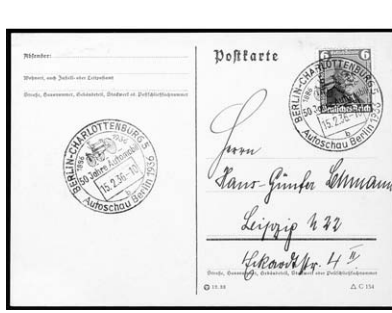 Absender:
Wohnort, auch Zustell- oder Leitpostamt
Straße, Hausnummer, Gebäudeteil, Stockwerk od. Postschließfachnummer
BERLIN-CHARLOTTENBURG 5
1886 1936
50 Jahre Automobil
15.2.36-10
b
Autoschau Berlin 1936
Postkarte
6 6
Deutsches Reich
BERLIN-CHARLOTTENBURG 5
15.2.36-10
b
Autoschau Berlin 1936
Herrn
Hans-Günter Lehmann
Leipzig N 22
Eckardtstr. 4 II
Straße, Hausnummer, Gebäudeteil, Stockwerk oder Postschließfachnummer
C 154